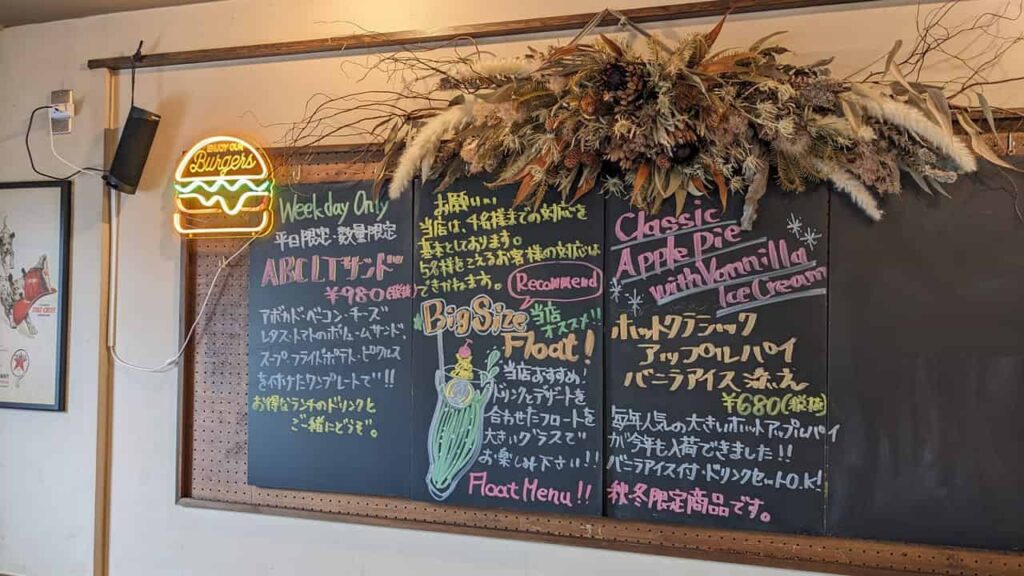 ENJOY OUR
Burgers
Weekday Only
平日限定・数量限定
ABCLTサンド
¥980(税抜)
アボカド・ベーコン・チーズ
レタス・トマトのボリュームサンド、
スープ・フライドポテト・ピクルス
を付けたワンプレートで!!
お得なランチのドリンクと
ご一緒にどうぞ。
お願い
当店は、4名様までの対応を
基本としております。
5名様をこえるお客様の対応は
できかねます。
Recommend
Big Size
当店
オススメ!!
Float!
当店おすすめ!
ドリンクとデザートを
合わせたフロートを
大きいグラスで
お楽しみ下さい!!
Float Menu!!
Classic
Apple Pie
with Vannilla
Ice Cream
ホットクラシック
アップルパイ
バニラアイス添え
¥680(税抜)
毎年人気の大きいホットアップルパイ
が今年も入荷できました!!
バニラアイス付・ドリンクセットO.K!
秋・冬限定商品です。